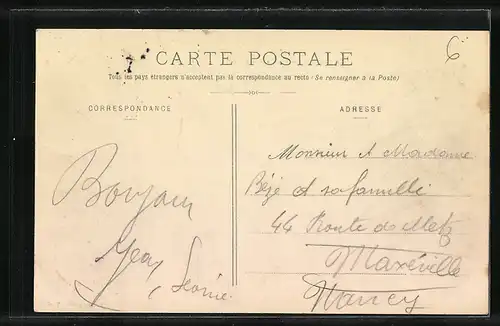 CARTE POSTALE
Tous les pays étrangers n'acceptent pas la correspondance au recto (Se renseigner à la Poste)
CORRESPONDANCE
ADRESSE
6
Monsieur & Madame
Béjé & sa famille
44 Route de Metz
Maxéville
Nancy
Bonjour
Léonie